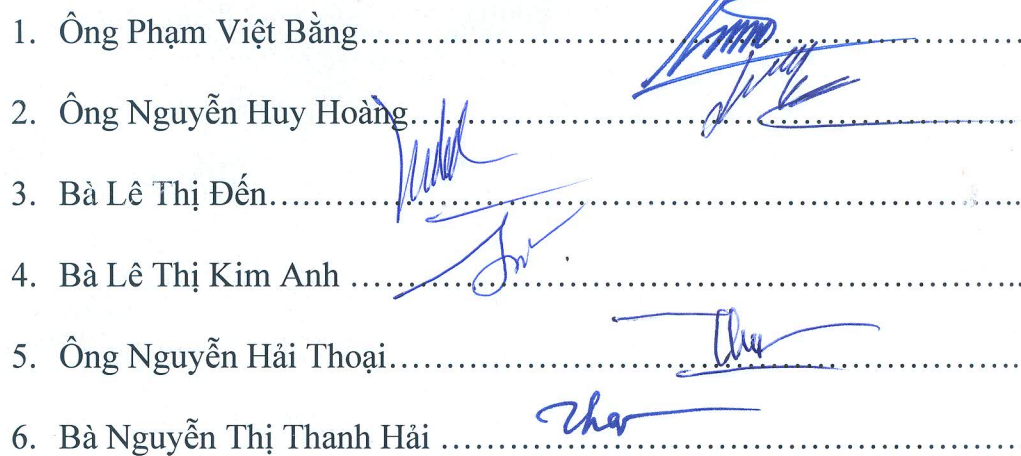 1. Ông Phạm Việt Bằng........................................................
2. Ông Nguyễn Huy Hoàng........................................................
3. Bà Lê Thị Đến........................................................
4. Bà Lê Thị Kim Anh ........................................................
5. Ông Nguyễn Hải Thoại........................................................
6. Bà Nguyễn Thị Thanh Hải ........................................................